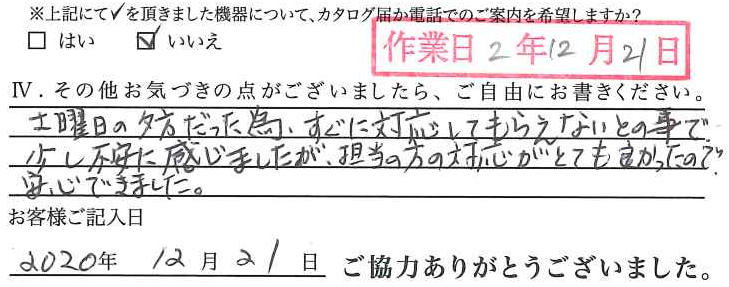 ※上記にて✓を頂きました機器について、カタログ届か電話でのご案内を希望しますか?
□ はい ☑ いいえ
作業日 2年12月21日
Ⅳ.その他お気づきの点がございましたら、ご自由にお書きください。
土曜日の夕方だった為、すぐに対応してもらえないとの事で
少し不安に感じましたが、担当の方の対応がとても良かったので
安心できました。
お客様ご記入日
2020年 12月21日 ご協力ありがとうございました。